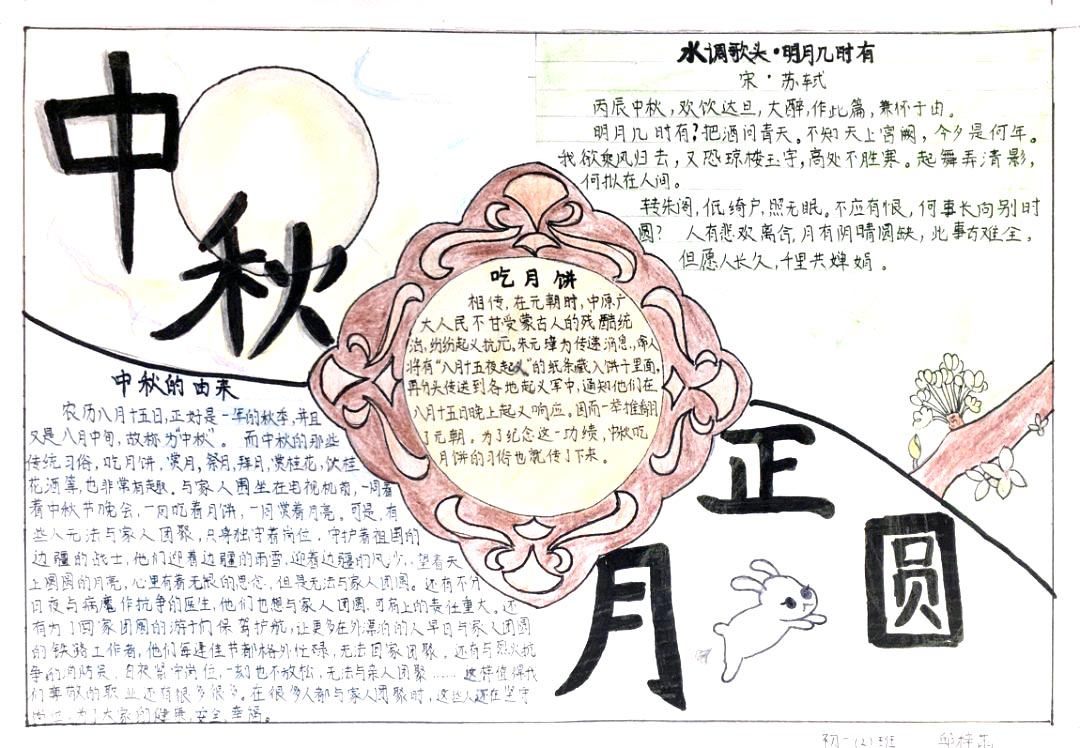 中秋
水调歌头·明月几时有
宋·苏轼
丙辰中秋，欢饮达旦，大醉，作此篇，兼怀子由。
明月几时有？把酒问青天。不知天上宫阙，今夕是何年。
我欲乘风归去，又恐琼楼玉宇，高处不胜寒。起舞弄清影，
何似在人间。
转朱阁，低绮户，照无眠。不应有恨，何事长向别时
圆？ 人有悲欢离合，月有阴晴圆缺，此事古难全。
但愿人长久，千里共婵娟。
吃月饼
相传，在元朝时，中原广
大人民不甘受蒙古人的残酷统
治，纷纷起义抗元。朱元璋为传递消息，命人
将有“八月十五夜起义”的纸条藏入饼子里面，
再分头传送到各地起义军中，通知他们在
八月十五日晚上起义响应。因而一举推翻
了元朝。为了纪念这一功绩，中秋吃
月饼的习俗也就传了下来。
中秋的由来
农历八月十五日，正好是一年的秋季，并且
又是八月中旬，故称为“中秋”。而中秋的那些
传统习俗，吃月饼，赏月，祭月，拜月，赏桂花，饮桂
花酒等，也非常有趣。与家人围坐在电视机前，一同看
着中秋节晚会，一同吃着月饼，一同赏着月亮。可是，有
些人无法与家人团聚，只得独守着岗位，守护着祖国的
边疆的战士，他们迎着边疆的雨雪，迎着边疆的风沙，望着天
上圆圆的月亮，心里有着无限的思念，但是无法与家人团圆。还有不分
日夜与病魔作抗争的医生，他们也想与家人团圆，可肩上的责任重大。还
有为了回家团圆的游子们保驾护航，让更多在外漂泊的人早日与家人团圆
的铁骑工作者，他们每逢佳节都格外忙碌，无法回家团聚。还有与烈火抗
争的消防员，日夜坚守岗位，一刻也不放松，无法与亲人团聚……这样值得我
们尊敬的职业还有很多很多。在很多人都与家人团聚时，这些人还在坚守
岗位，为了大家的健康，安全，幸福。
正
月圆
初一(2)班 邱梓